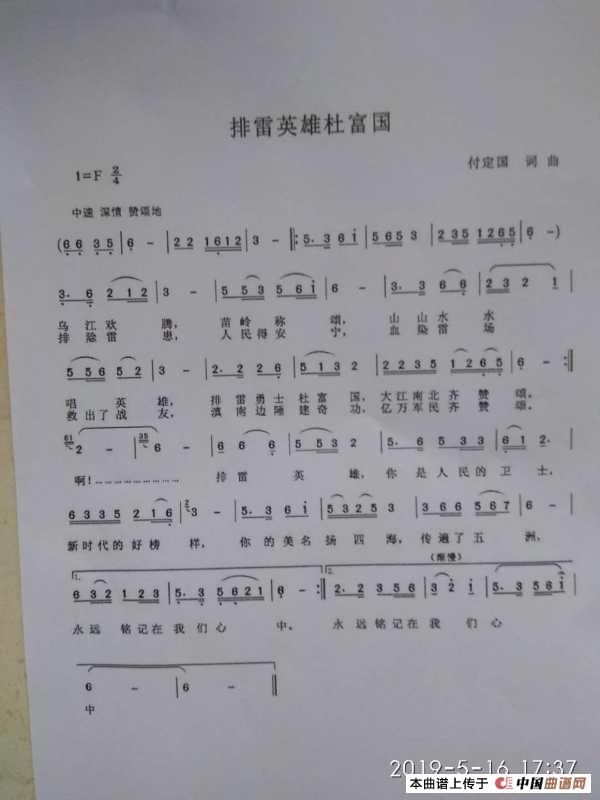 排雷英雄杜富国
付定国 词 曲
1=F 2/4
中速 深情 赞颂地
(6 6 3 5 | 6 - | 2 2 1 6 1 2 | 3 - |: 5. 3 6 i | 5 6 5 3 | 2 3 5 1 2 6 5 | 6 - )
3. 6 2 1 2 | 3 - | 5 5 3 5 6 i | 6 - | 3. 3 6 6 | 2 3 2 1
乌江欢腾, 苗岭称颂, 山山水水
排除雷患, 人民得安宁, 血染雷场
5 5 6 2 2 | 3 - | 2. 2 2 6 | 2 2 3 | 2 3 5 5 1 2 6 5 | 6 - :|
唱英雄, 排雷勇士杜富国, 大江南北齐赞颂.
救出了战友, 滇南边陲建奇功, 亿万军民齐赞颂.
61 2 - | 35 6 - | 6 2 1 6 | 5 5 3 | 5. 6 5 3 | 6 i 2.
啊!……………… 排雷英雄, 你是人民的卫士,
6 3 3 5 2 1 6 | 2 3 - | 5. 3 6 i | 5 3 2 5 3 | 3 6 6 5 6 7 | 6 -
新时代的好榜样, 你的美名扬四海, 传遍了五洲,
(渐慢)
1. 6 3 2 1 2 3 | 5. 3 5 6 2 1 | 6 - :| 2. 2. 2 3 5 6 | 3 2 i | 5. 3 5 6 i
永远铭记在我们心中. 永远铭记在我们心
6 - | 6 - ‖
中
2019-5-16 17:37
本曲谱上传于 中国曲谱网